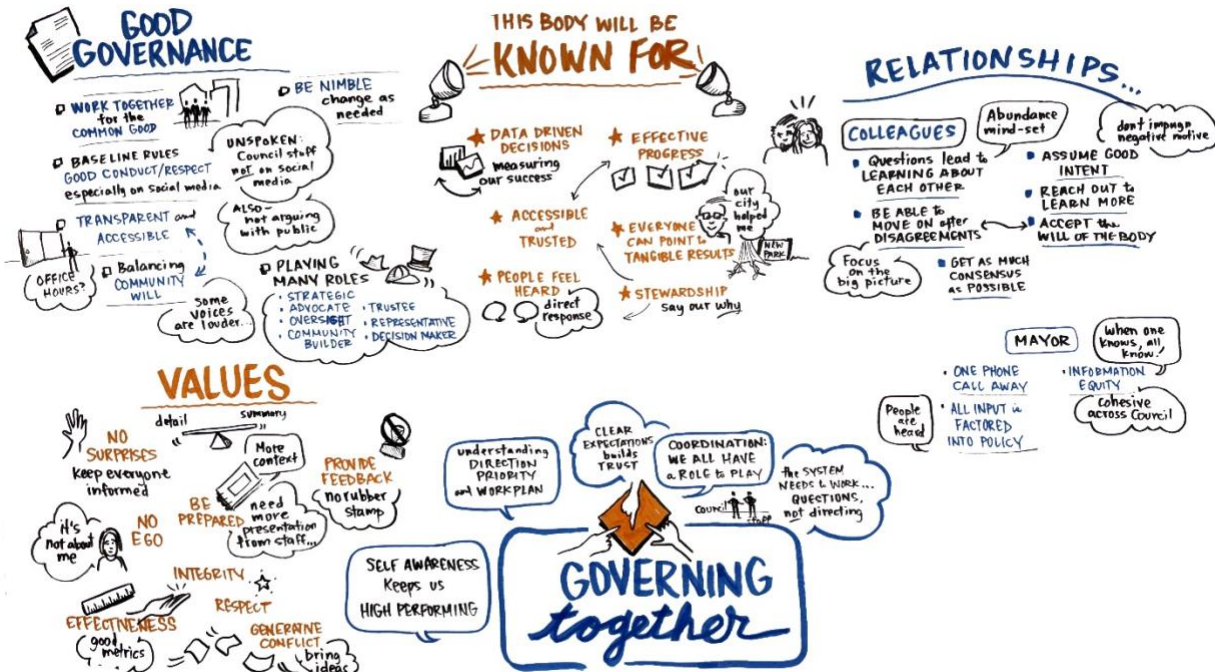 GOOD
GOVERNANCE
WORK TOGETHER
for the
COMMON GOOD
BE NIMBLE
change as
needed
BASELINE RULES
GOOD CONDUCT/RESPECT
especially on social media
UNSPOKEN:
Council staff
not on social
media
ALSO-
not arguing
with public
TRANSPARENT and
ACCESSIBLE
OFFICE
HOURS?
Balancing
COMMUNITY
WILL
some
voices
are louder...
PLAYING
MANY ROLES
• STRATEGIC
• ADVOCATE
• OVERSIGHT
• COMMUNITY
BUILDER
• TRUSTEE
• REPRESENTATIVE
• DECISION MAKER
THIS BODY WILL BE
KNOWN FOR
DATA DRIVEN
DECISIONS
measuring
our success
EFFECTIVE
PROGRESS
ACCESSIBLE
and
TRUSTED
EVERYONE
CAN POINT to
TANGIBLE RESULTS
our
city
helped
me
NEW
PARK
PEOPLE FEEL
HEARD
direct
response
STEWARDSHIP
say our why
RELATIONSHIPS...
COLLEAGUES
Abundance
mind-set
don't impugn
negative motive
Questions lead to
LEARNING ABOUT
EACH OTHER
BE ABLE to
MOVE ON after
DISAGREEMENTS
Focus
on the
big picture
ASSUME GOOD
INTENT
REACH OUT to
LEARN MORE
ACCEPT the
WILL OF THE BODY
GET AS MUCH
CONSENSUS
as POSSIBLE
MAYOR
When one
knows, all
know!
• ONE PHONE
CALL AWAY
• INFORMATION
EQUITY
People
are
heard
• ALL INPUT is
FACTORED
INTO POLICY
Cohesive
across Council
VALUES
detail
summary
NO
SURPRISES
Keep everyone
informed
More
context
BE
PREPARED
need
more
presentation
from staff...
PROVIDE
FEEDBACK
no rubber
stamp
it's
not about
me
NO
EGO
INTEGRITY
RESPECT
EFFECTIVENESS
good
metrics
GENERATIVE
CONFLICT
bring
ideas
understanding
DIRECTION
PRIORITY
and WORKPLAN
CLEAR
EXPECTATIONS
builds
TRUST
COORDINATION:
WE ALL HAVE
a ROLE to PLAY
the SYSTEM
NEEDS to WORK...
QUESTIONS,
not directing
Council
staff
SELF AWARENESS
Keeps us
HIGH PERFORMING
GOVERNING
together